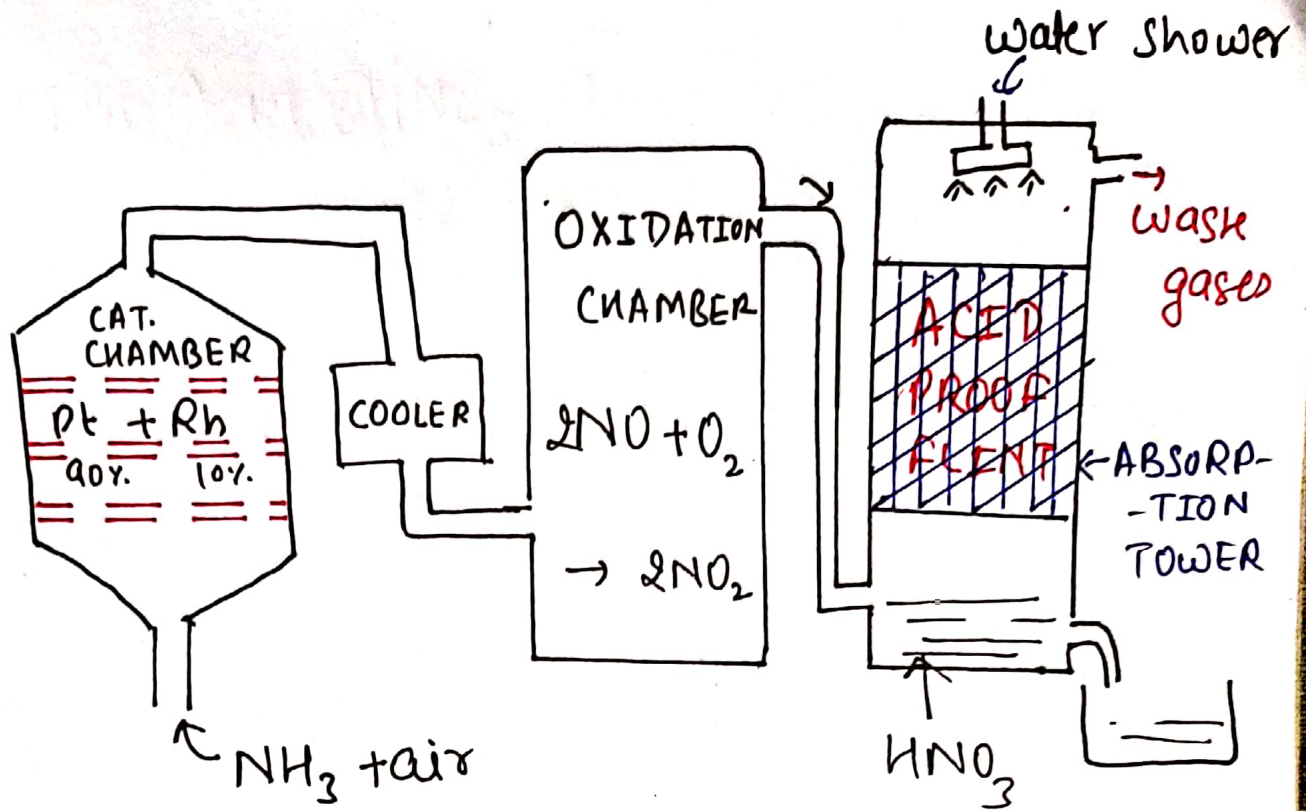 water shower
wash
gases
CAT.
CHAMBER
Pt + Rh
90%. 10%.
COOLER
OXIDATION
CHAMBER
2NO + O₂
→ 2NO₂
ACID
PROOF
FLENT
←ABSORP-
-TION
TOWER
NH₃ + air
HNO₃